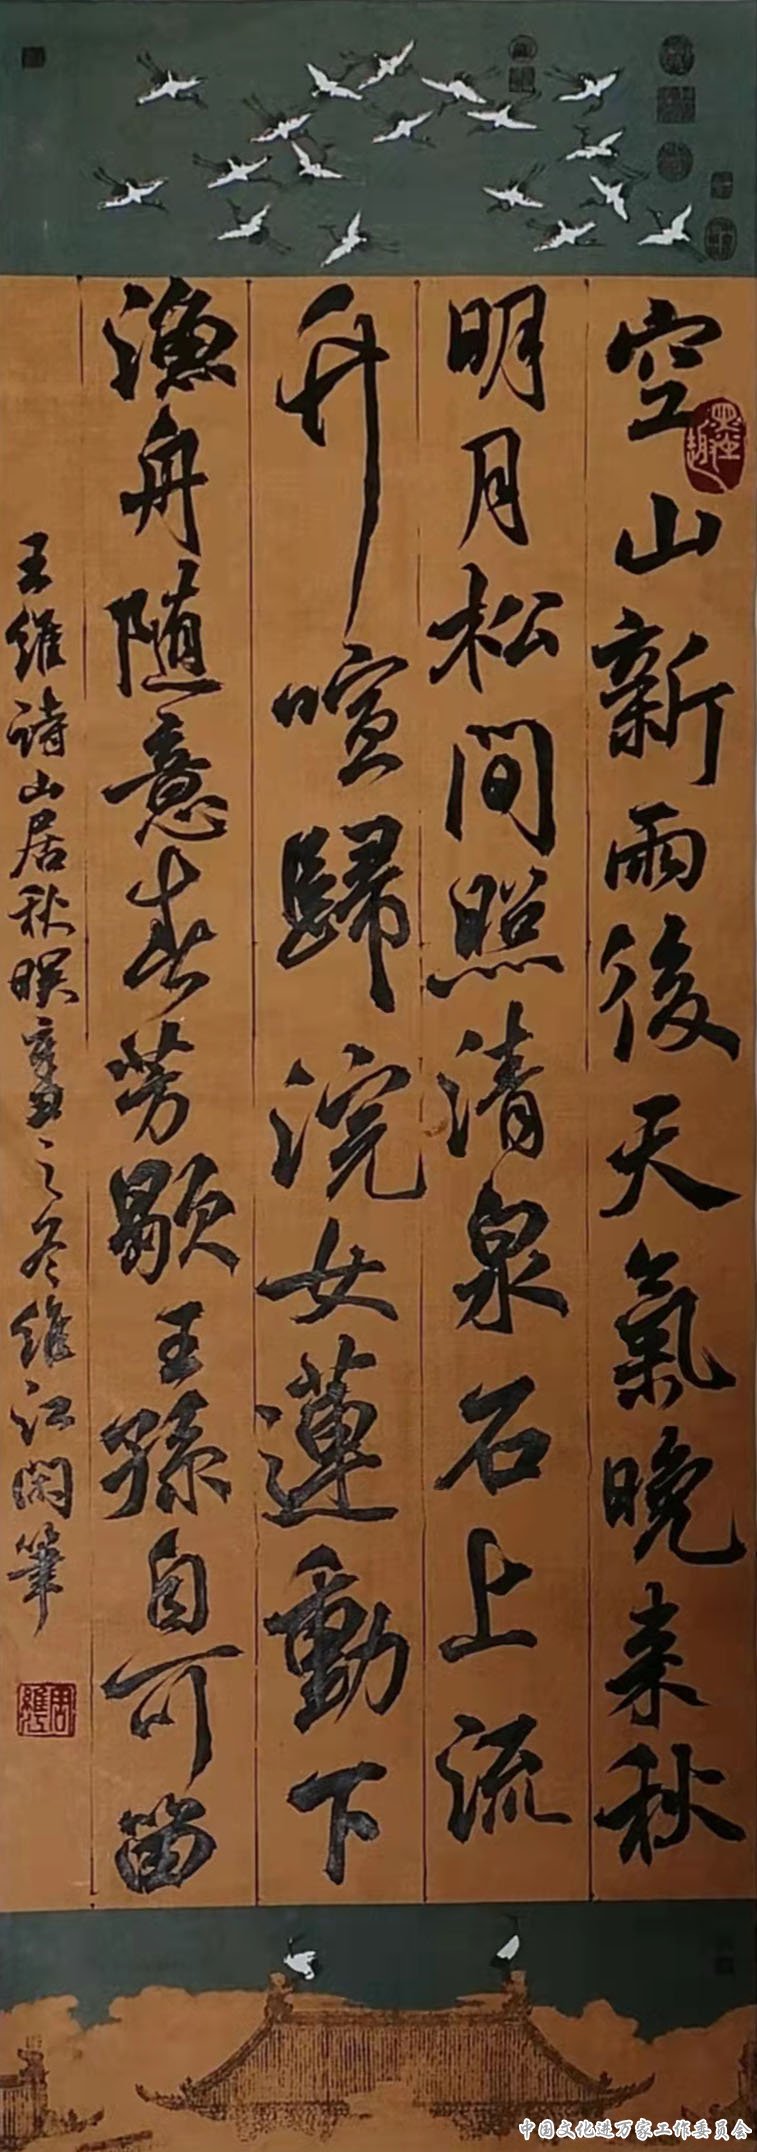 空山新雨後天氣晚来秋
明月松间照清泉石上流
竹喧歸浣女蓮動下
渔舟随意春芳歇王孫自可留
王維诗山居秋暝辛丑之冬維江闲筆
中国文化进万家工作委员会